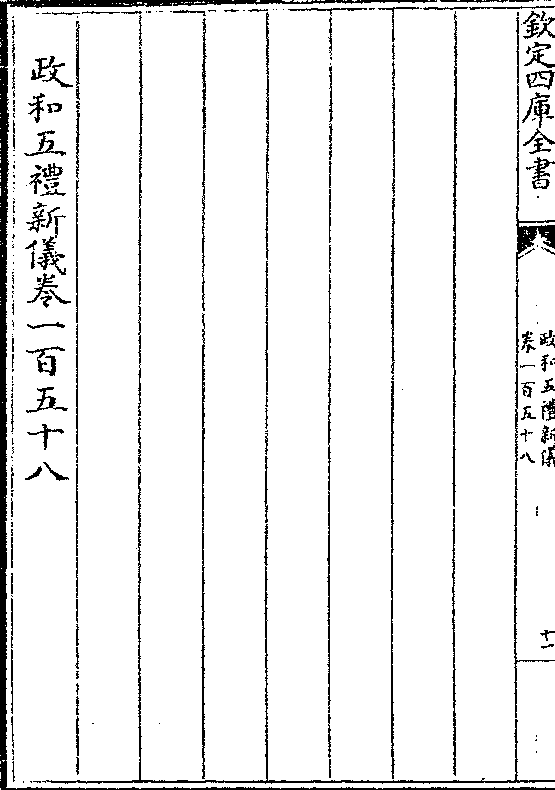 欽定四庫全書
政和五禮新儀
卷一百五十八
十一
政和五禮新儀卷一百五十八